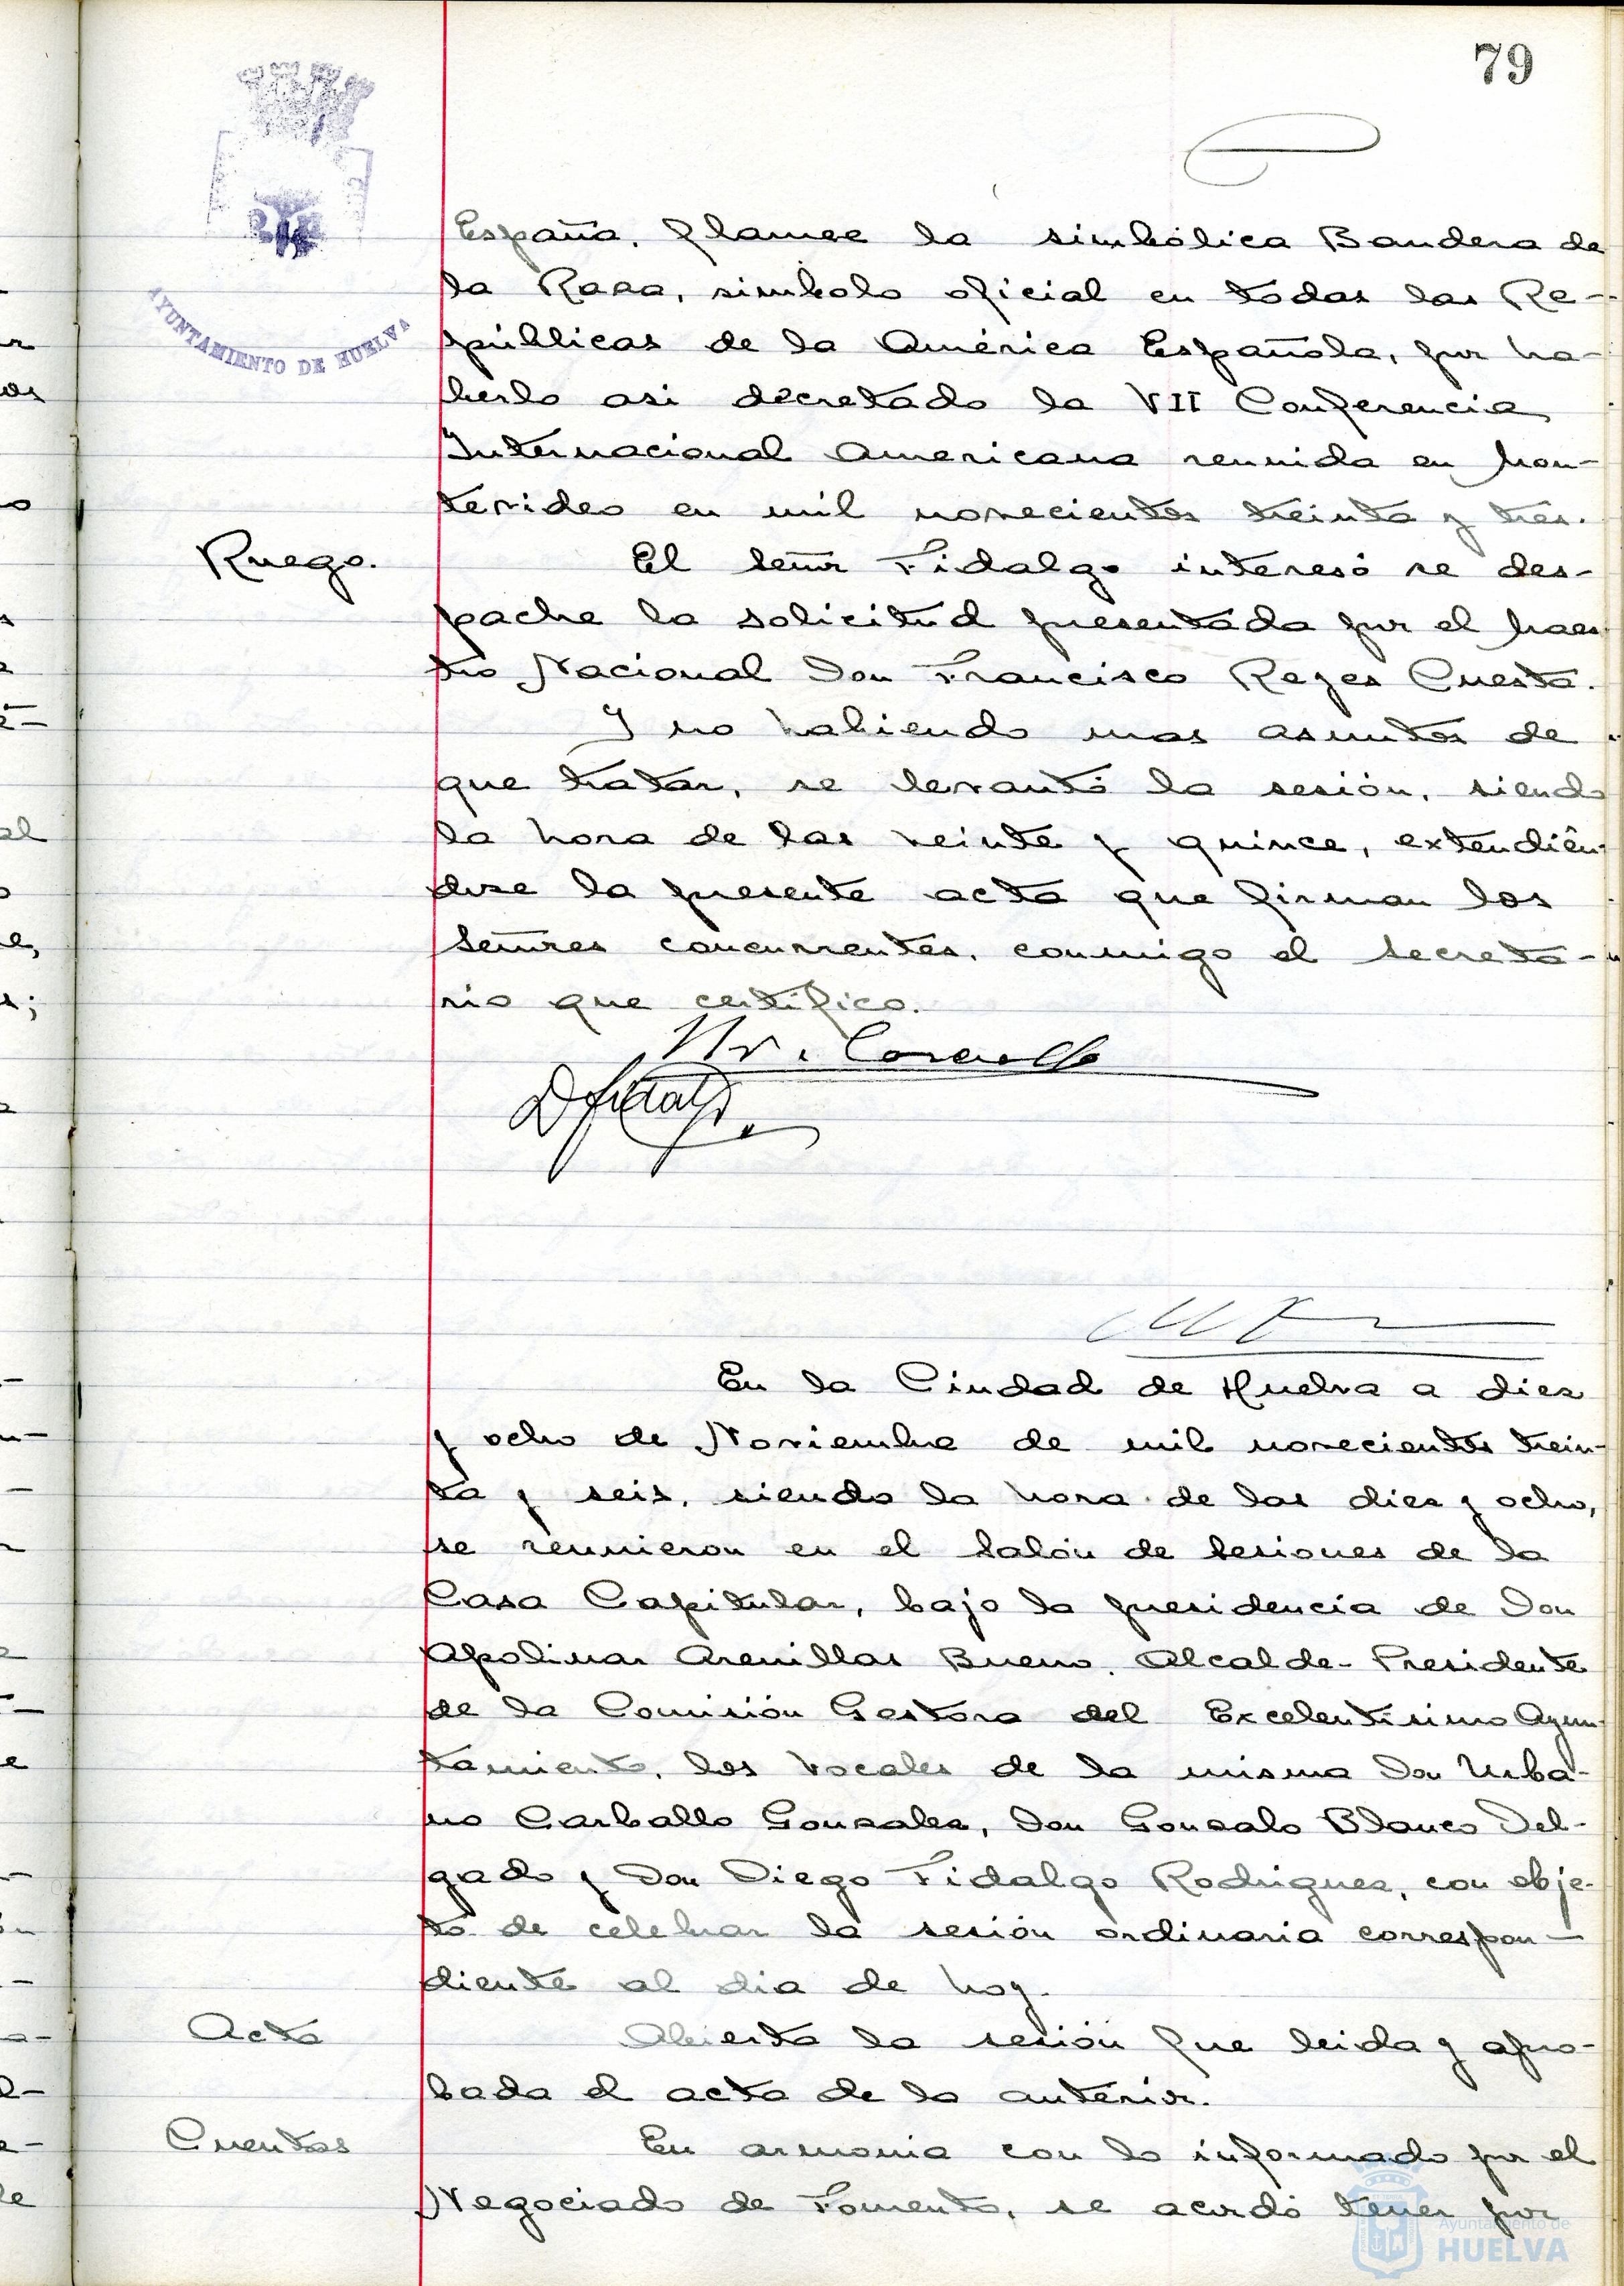 79
AYUNTAMIENTO DE HUELVA
España, flamee la simbólica Bandera de
la Raza, simbolo oficial en todas las Re-
públicas de la América Española, por ha-
berlo asi decretado la VII Conferencia
Internacional Americana reunida en Mon-
tevideo en mil novecientos treinta y tres.
Ruego.
El señor Fidalgo interesó se des-
pache la solicitud presentada por el Maes-
tro Nacional Don Francisco Reyes Cuesta.
Y no habiendo mas asuntos de
que tratar, se levantó la sesión, siendo
la hora de las veinte y quince, extendién-
dose la presente acta que firman los
señores concurrentes, conmigo el secreta-
rio que certifico.
D Fidalgo
En la Ciudad de Huelva a diez
y ocho de Noviembre de mil novecientos trein-
ta y seis, siendo la hora de las diez y ocho,
se reunieron en el Salón de Sesiones de la
Casa Capitular, bajo la presidencia de Don
Apolinar Arenillas Bueno, Alcalde-Presidente
de la Comisión Gestora del Excelentisimo Ayun-
tamiento, los Vocales de la misma Don Urba-
no Carballo Gonzalez, Don Gonzalo Blanco Del-
gado y Don Diego Fidalgo Rodriguez, con obje-
to de celebrar la sesión ordinaria correspon-
diente al dia de hoy.
Acta
Abierta la sesión fue leida y apro-
bada el acta de la anterior.
Cuentas
En armonia con lo informado por el
Negociado de Fomento, se acordó tener por
Ayuntamiento de
HUELVA